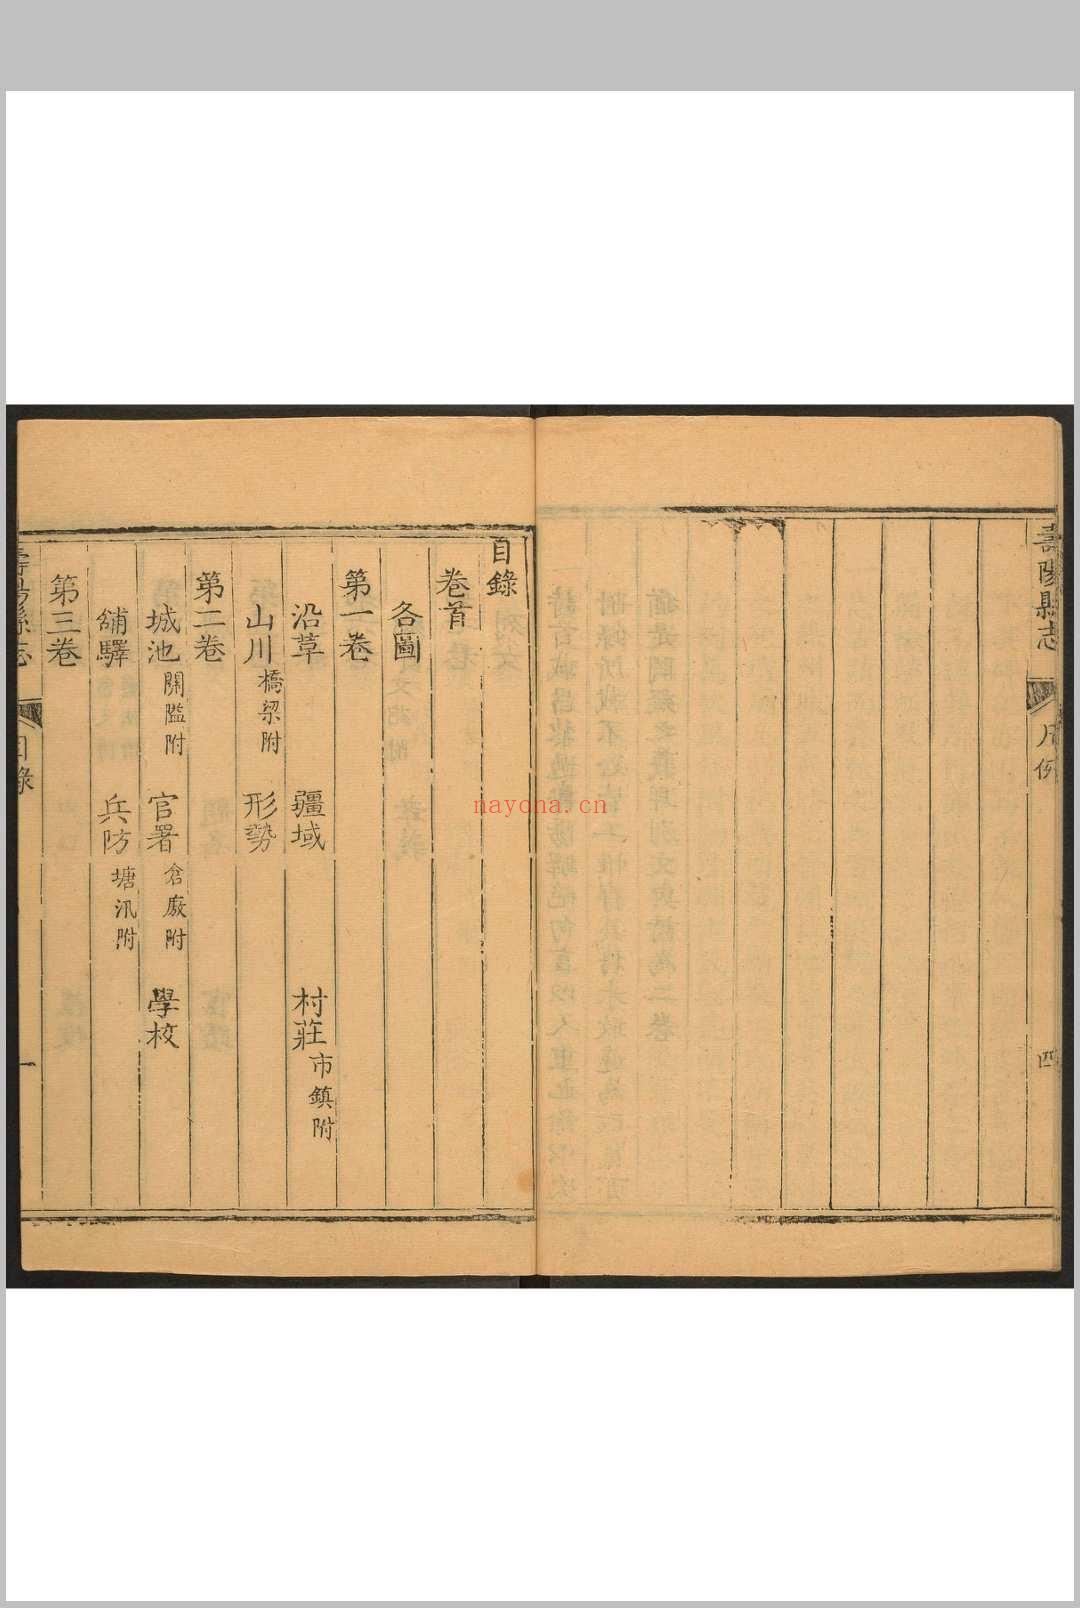 壽陽縣志
凡例
四
目錄
卷首
各圖
第一卷
沿革 疆域 村莊 市鎮附
山川 橋梁附 形勢
第二卷
城池 關隘附 官署 倉廒附 學校
舖驛 兵防 塘汛附
第三卷
壽陽縣志
目錄
一
nayona.cn